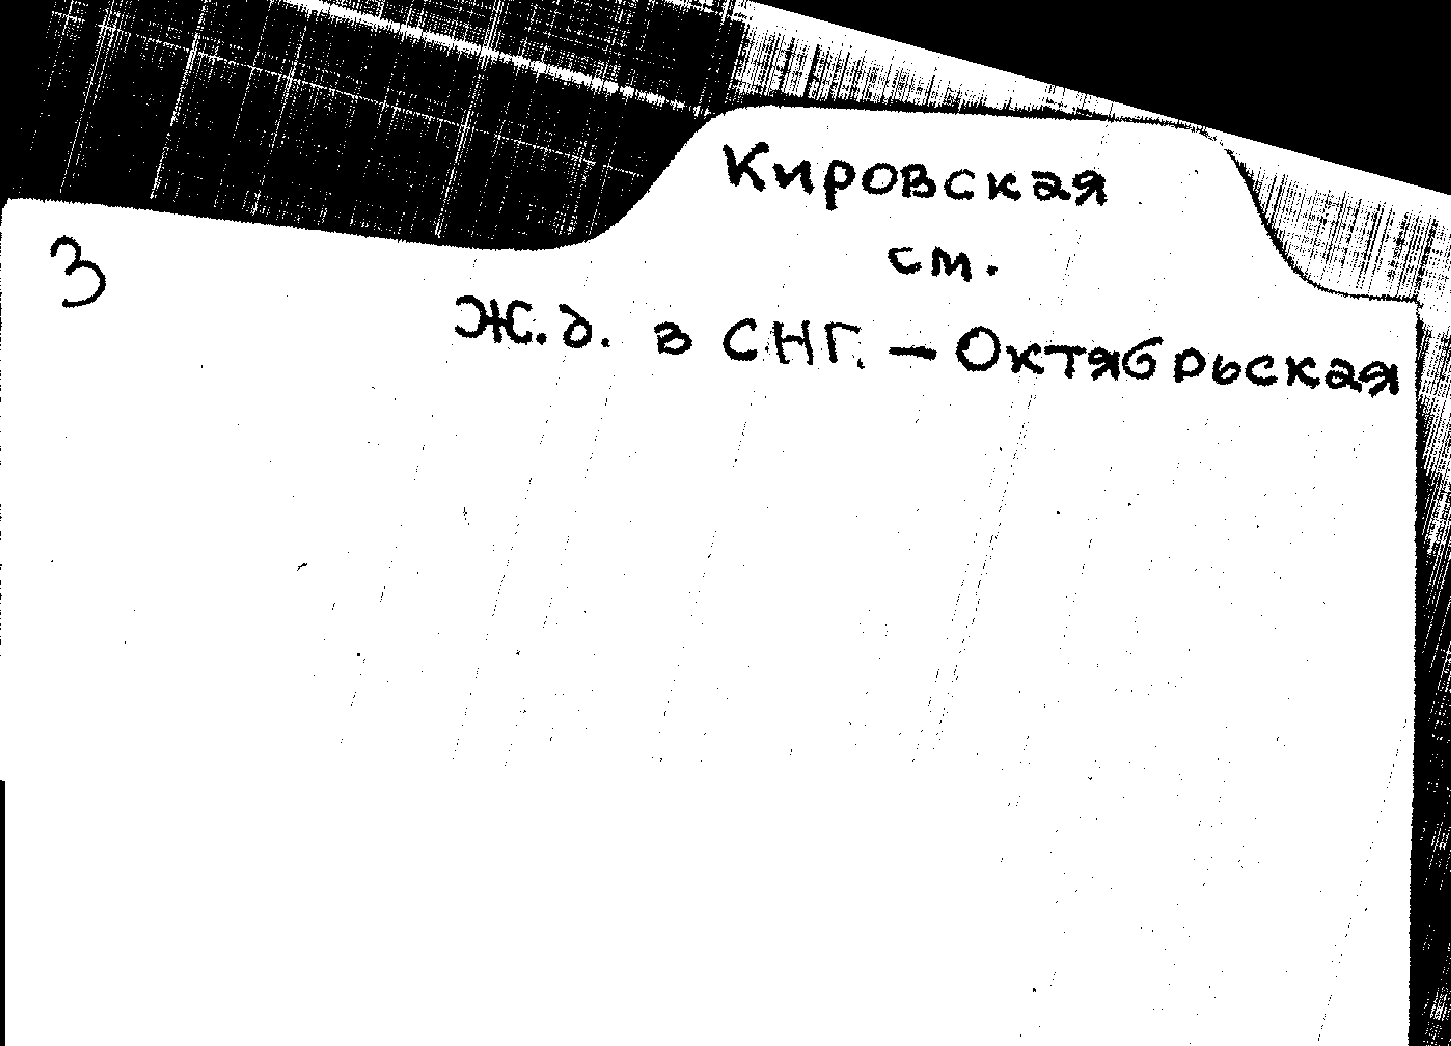 Кировская
см.
3
Ж.д. в СНГ. – Октябрьская